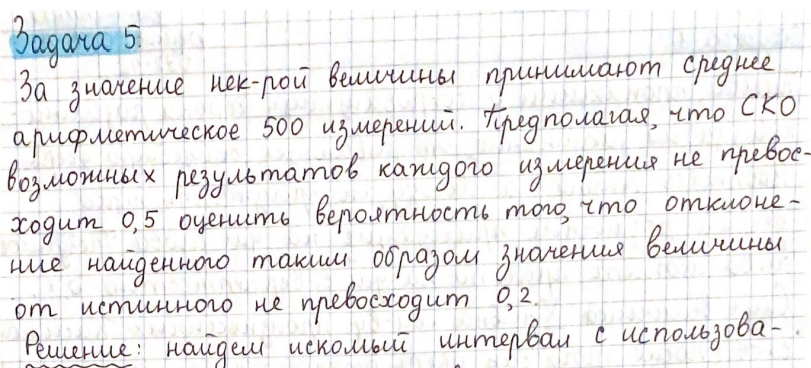 Задача 5.
За значение нек-рой величины принимают среднее
арифметическое 500 измерений. Предполагая, что СКО
возможных результатов каждого измерения не превос-
ходит 0,5 оценить вероятность того, что отклоне-
ние найденного таким образом значения величины
от истинного не превосходит 0,2.
Решение: найдем искомый интервал с использова-